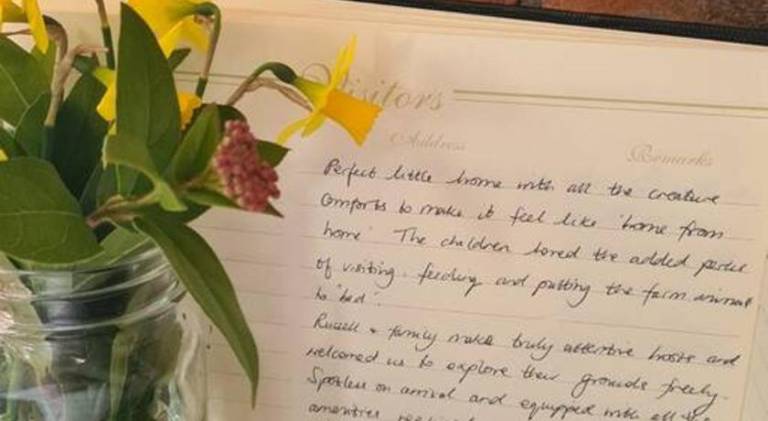 Visitors
Address Remarks
Perfect little home with all the creature
comforts to make it feel like 'home from
home'. The children loved the added perks
of visiting, feeding and putting the farm animals
to 'bed'.
Russell + family make truly attentive hosts and
welcomed us to explore their grounds freely.
Spotless on arrival and equipped with all the
amenities